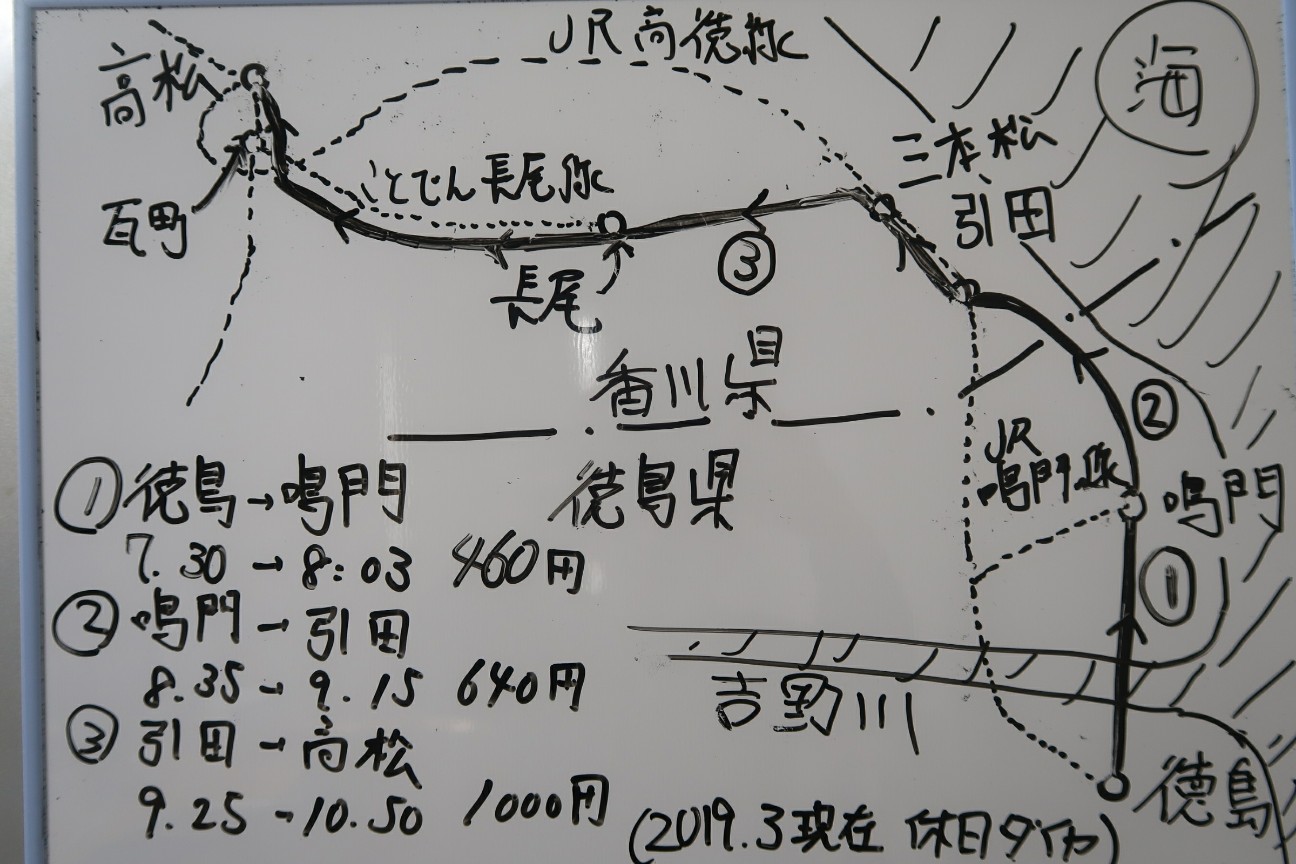 JR高徳線
海
高松
三本松
ことでん長尾線
引田
瓦町
③
長尾
香川県
②
JR
鳴門線
①徳島→鳴門
徳島県
鳴門
7.30→8:03 460円
①
②鳴門→引田
8.35→9.15 640円
吉野川
③引田→高松
徳島
9.25→10.50 1000円
(2019.3現在 休日ダイヤ)